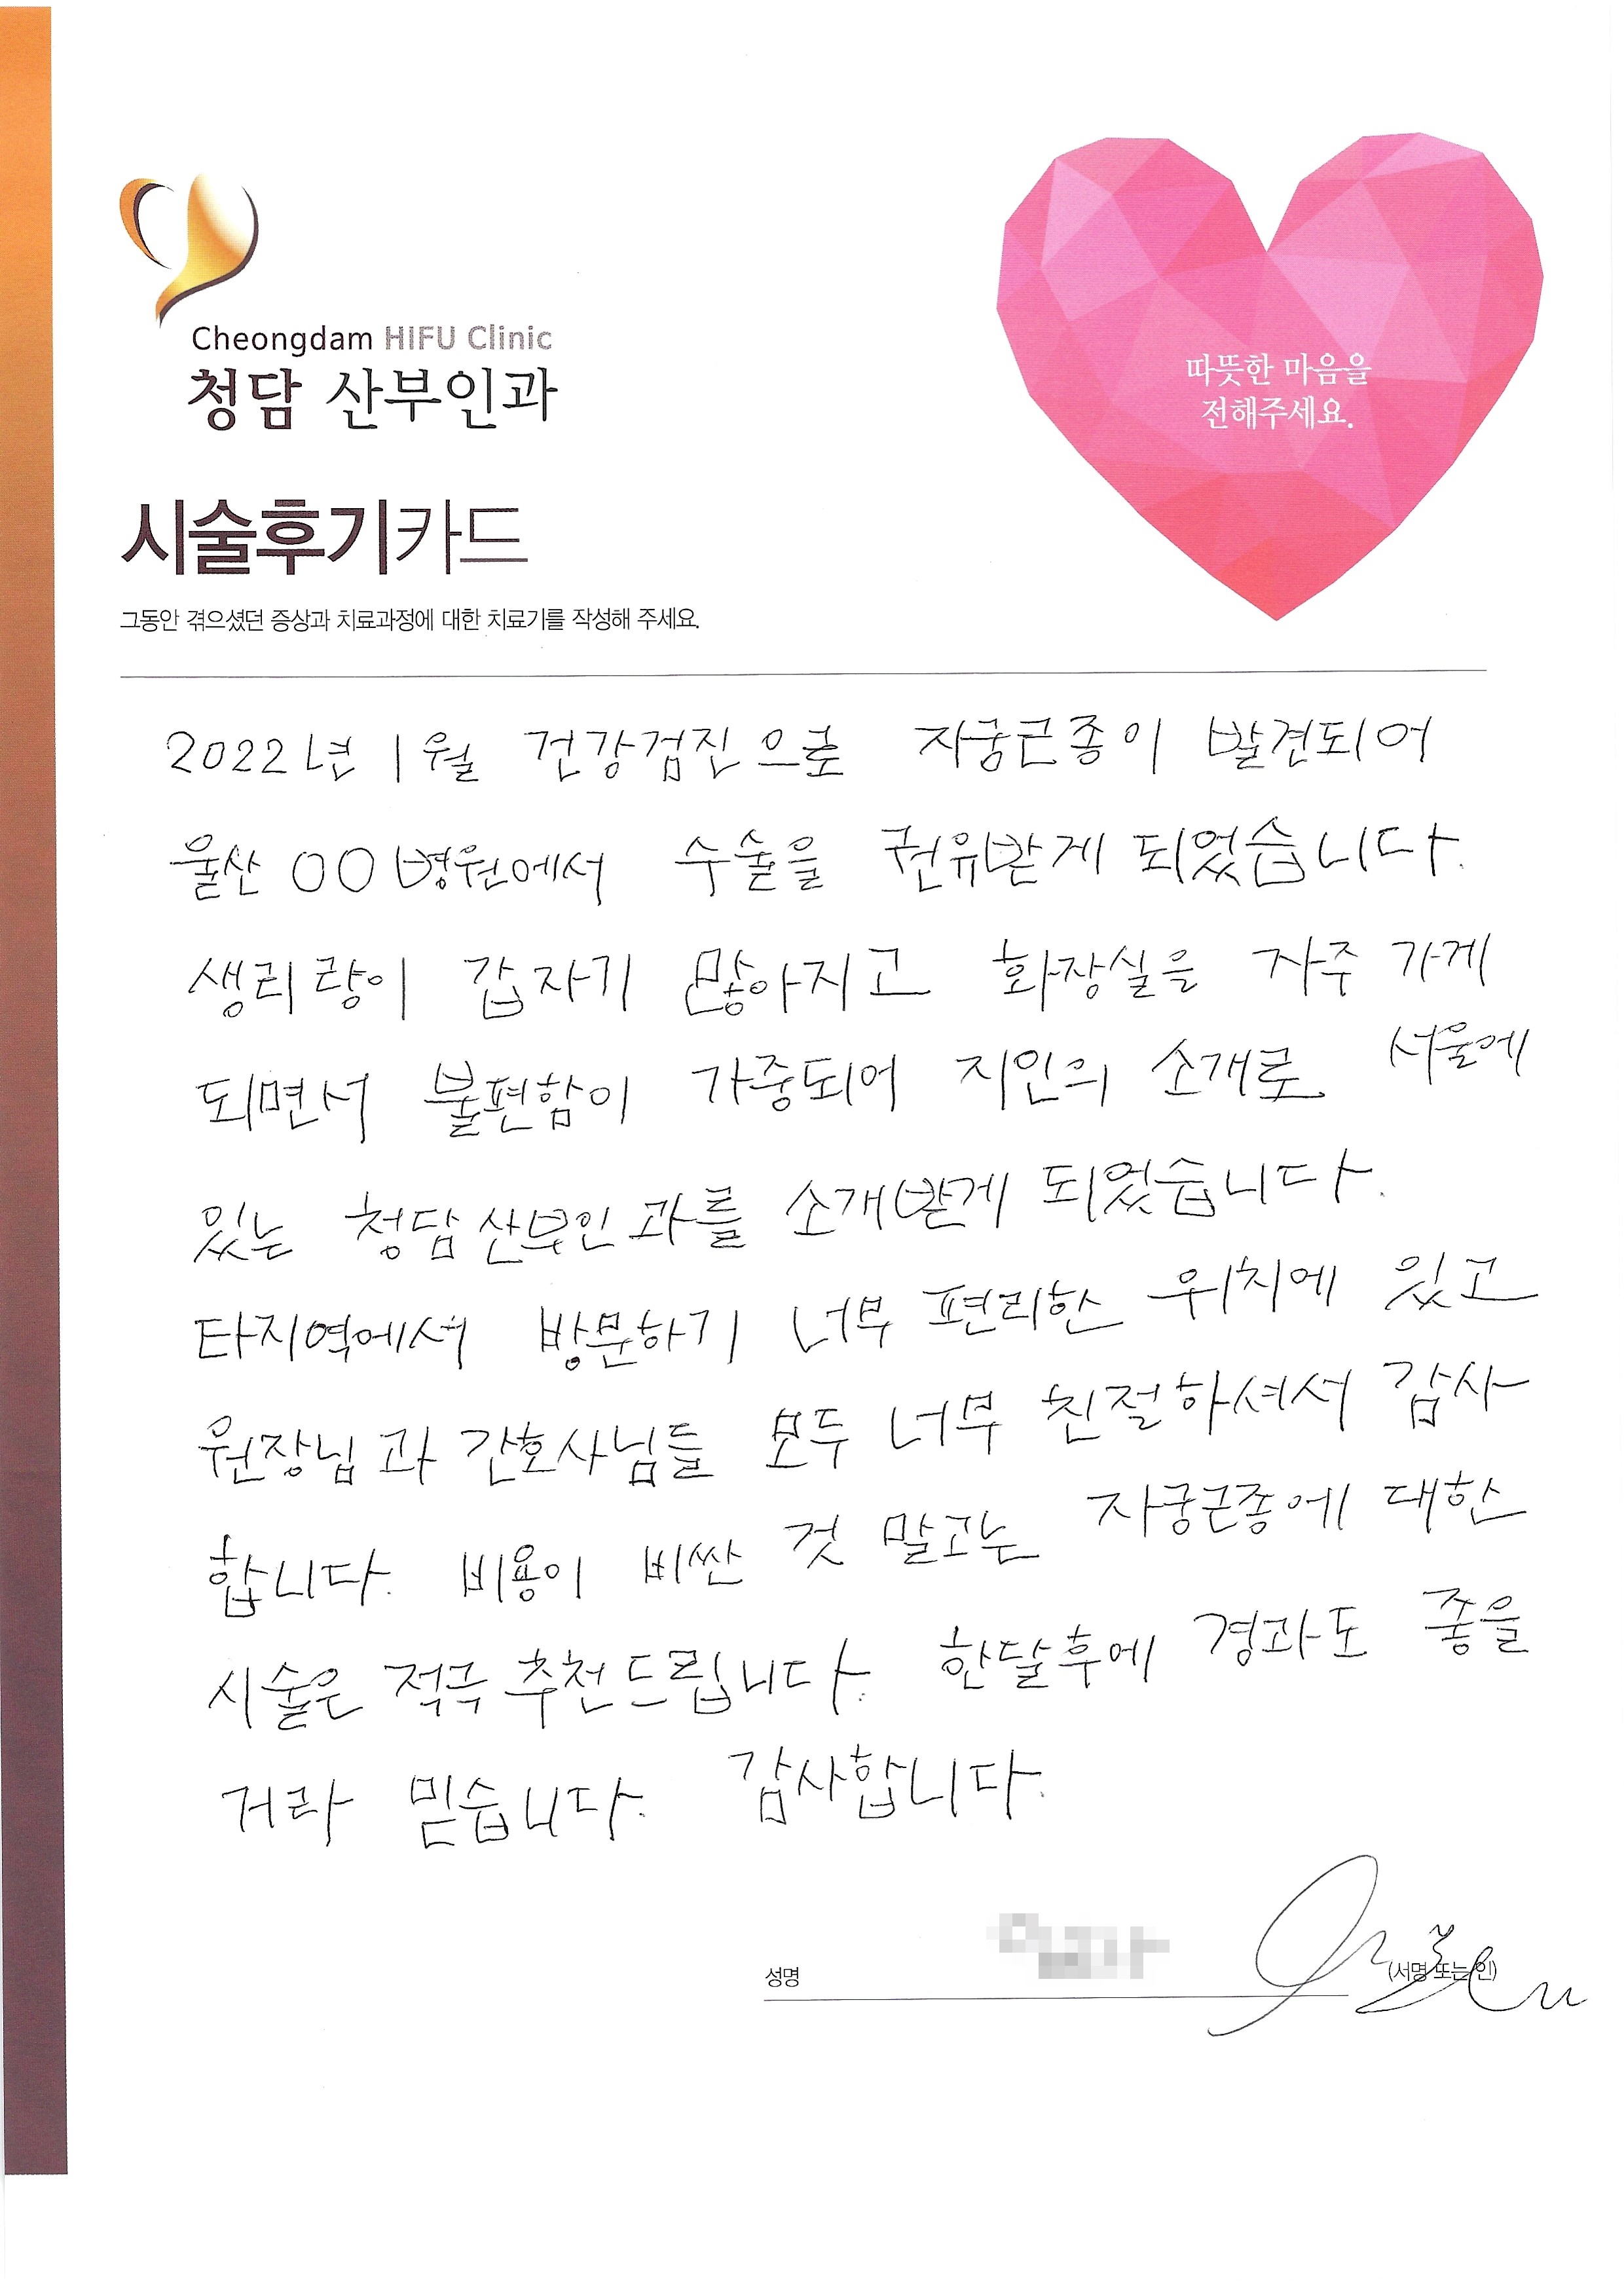 Cheongdam HIFU Clinic
청담 산부인과
따뜻한 마음을
전해주세요.
시술후기카드
그동안 겪으셨던 증상과 치료과정에 대한 치료기를 작성해 주세요.
2022년 1월 건강검진으로 자궁근종이 발견되어
울산 OO병원에서 수술을 권유받게 되었습니다.
생리량이 갑자기 많아지고 화장실을 자주 가게
되면서 불편함이 가중되어 지인의 소개로 서울에
있는 청담산부인과를 소개받게 되었습니다.
타지역에서 방문하기 너무 편리한 위치에 있고
원장님과 간호사님들 모두 너무 친절하셔서 감사
합니다. 비용이 비싼 것 말고는 자궁근종에 대한
시술은 적극 추천드립니다. 한달후에 경과도 좋을
거라 믿습니다. 감사합니다.
성명
(서명 또는 인)